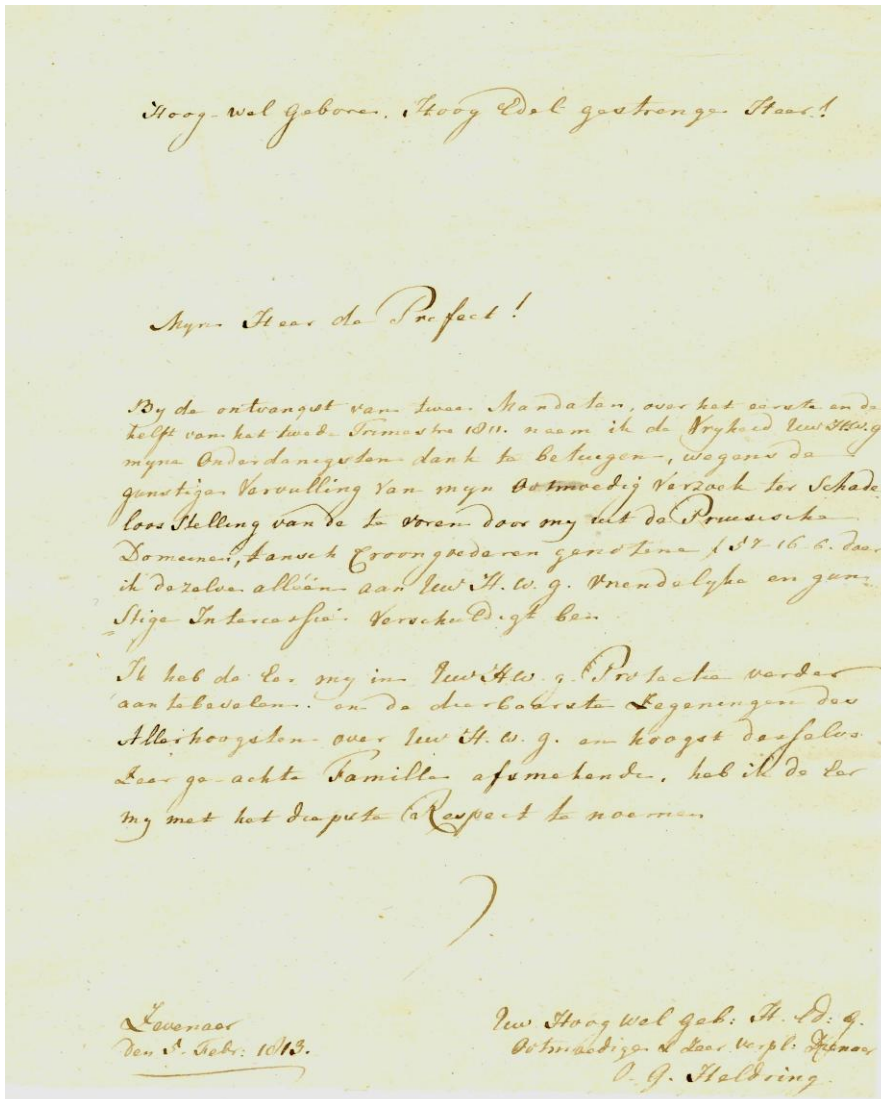 Hoog-wel Geboren, Hoog Edel gestrenge Heer!
Myn Heer de Prefect!
By de ontvangst van twee Mandaten, over het eerste en de
helft van het twede Trimestre 1811. neem ik de Vryheid Uw H.W.g
myne Onderdanigsten dank te betuigen, wegens de
gunstige Vervulling van myn Ootmoedig Verzoek ter Schade
loos Stelling van de te voren door my uit de Pruisische
Domeinen, Croongoederen genotene f 57-16-6. daar
ik dezelve alléén aan Uw H.W.g. Vriendelyke en gun
Stige Intercessie Verschuldigt ben.
Ik heb de Eer my in Uw H.W.g. Protectie verder
aantebevelen. en de dierbaarste Zegeningen des
Allerhoogsten over Uw H.W.g. en hoogst deszelvs
Zeer ge-achte Famille afsmekende, heb ik de Eer
my met het diepste Respect te noemen
Zevenaer
Den 5 Febr: 1813.
Uw Hoog Wel geb: H. Ed: g.
Ootmoedige & Zeer verpl: Dienaar
O. G. Heldring